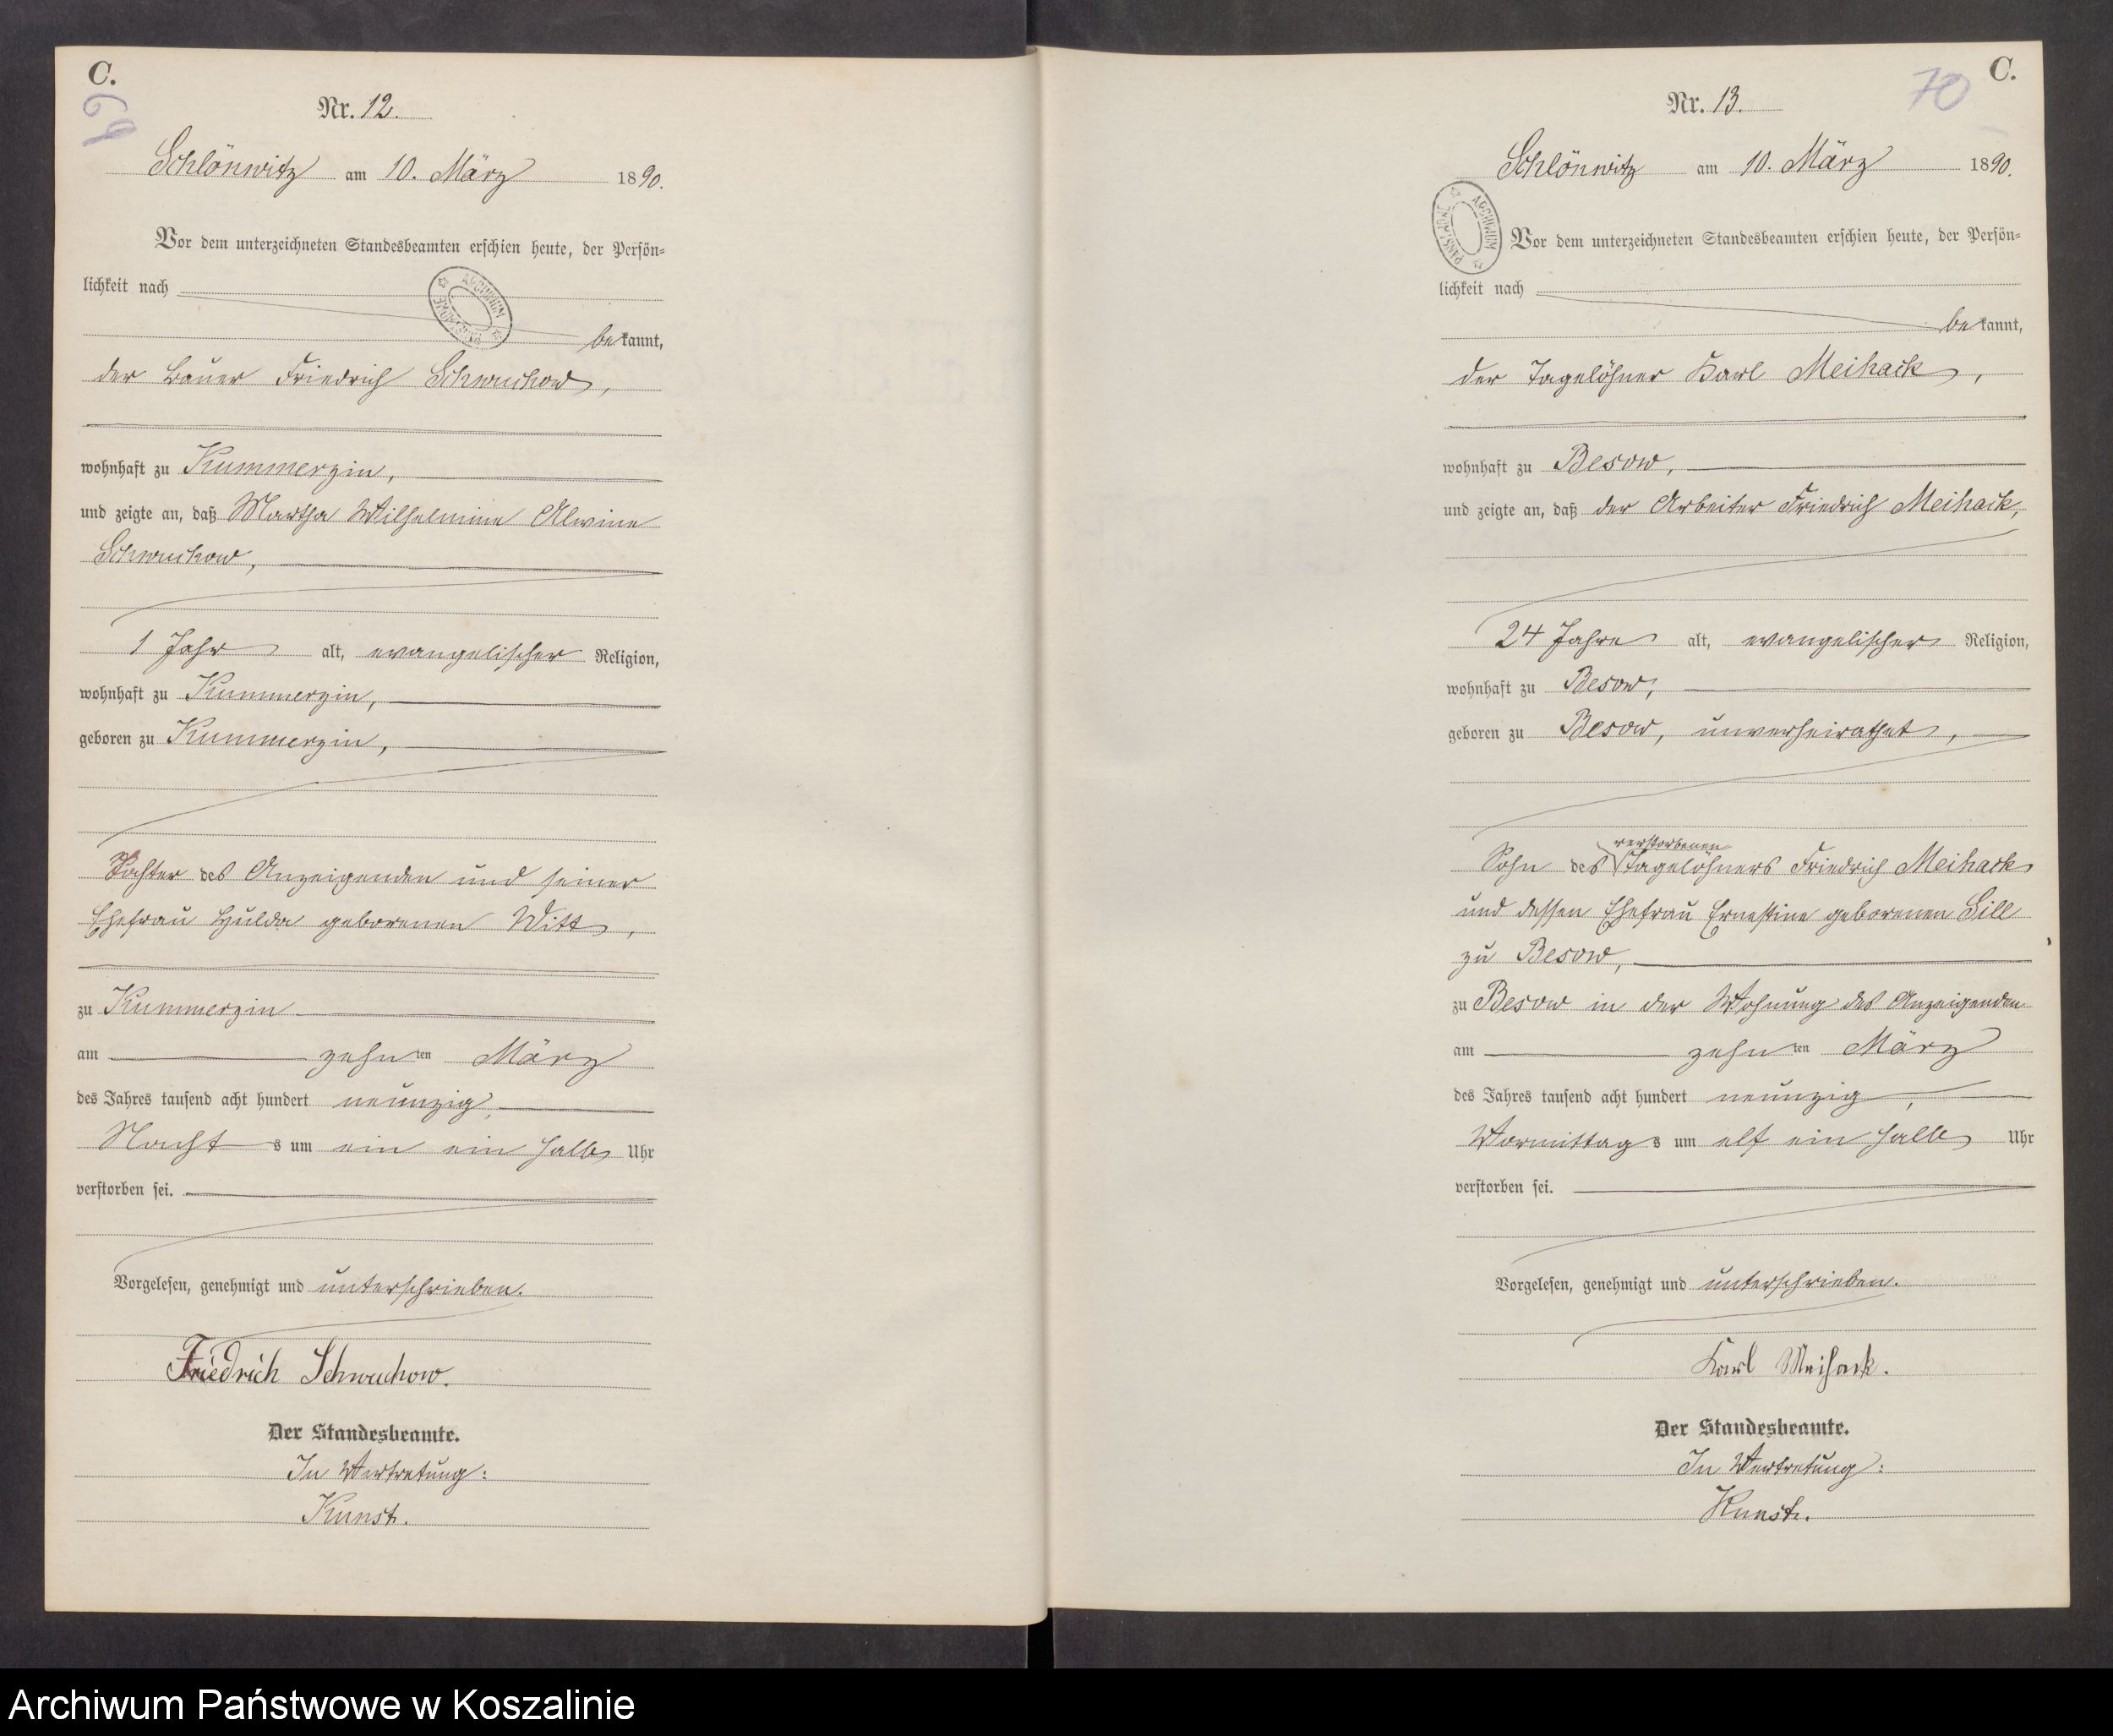 C.
69
Nr. 12.
Schlönwitz am 10. März 1890.
Vor dem unterzeichneten Standesbeamten erschien heute, der Persön-
lichkeit nach
bekannt,
der Bauer Friedrich Schwuchow,
wohnhaft zu Kummerzin,
und zeigte an, daß Martha Wilhelmine Alwine
Schwuchow,
1 Jahr alt, evangelischer Religion,
wohnhaft zu Kummerzin,
geboren zu Kummerzin,
Tochter des Anzeigenden und seiner
Ehefrau Hulda geborenen Witt,
zu Kummerzin
am zehnten März
des Jahres tausend acht hundert neunzig,
Nachts um ein ein halb Uhr
verstorben sei.
Vorgelesen, genehmigt und unterschrieben.
Friedrich Schwuchow.
Der Standesbeamte.
In Vertretung:
Kunst.
ARCHIWUM PAŃSTWOWE
C.
70
Nr. 13.
Schlönwitz am 10. März 1890.
Vor dem unterzeichneten Standesbeamten erschien heute, der Persön-
lichkeit nach
bekannt,
der Tagelöhner Karl Meihack,
wohnhaft zu Besow,
und zeigte an, daß der Arbeiter Friedrich Meihack,
24 Jahre alt, evangelischer Religion,
wohnhaft zu Besow,
geboren zu Besow, unverheirathet,
verstorbenen
Sohn des Tagelöhners Friedrich Meihack
und dessen Ehefrau Ernestine geborenen Sill
zu Besow,
zu Besow in der Wohnung des Anzeigenden
am zehnten März
des Jahres tausend acht hundert neunzig,
Vormittags um elf ein halb Uhr
verstorben sei.
Vorgelesen, genehmigt und unterschrieben.
Karl Meihack.
Der Standesbeamte.
In Vertretung:
Kunst.
ARCHIWUM PAŃSTWOWE
Archiwum Państwowe w Koszalinie